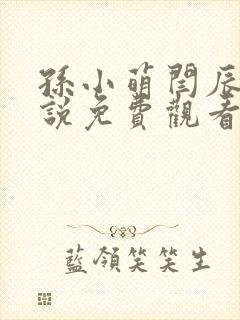 孫小萌閆辰
說免費觀看
藍領笑笑生